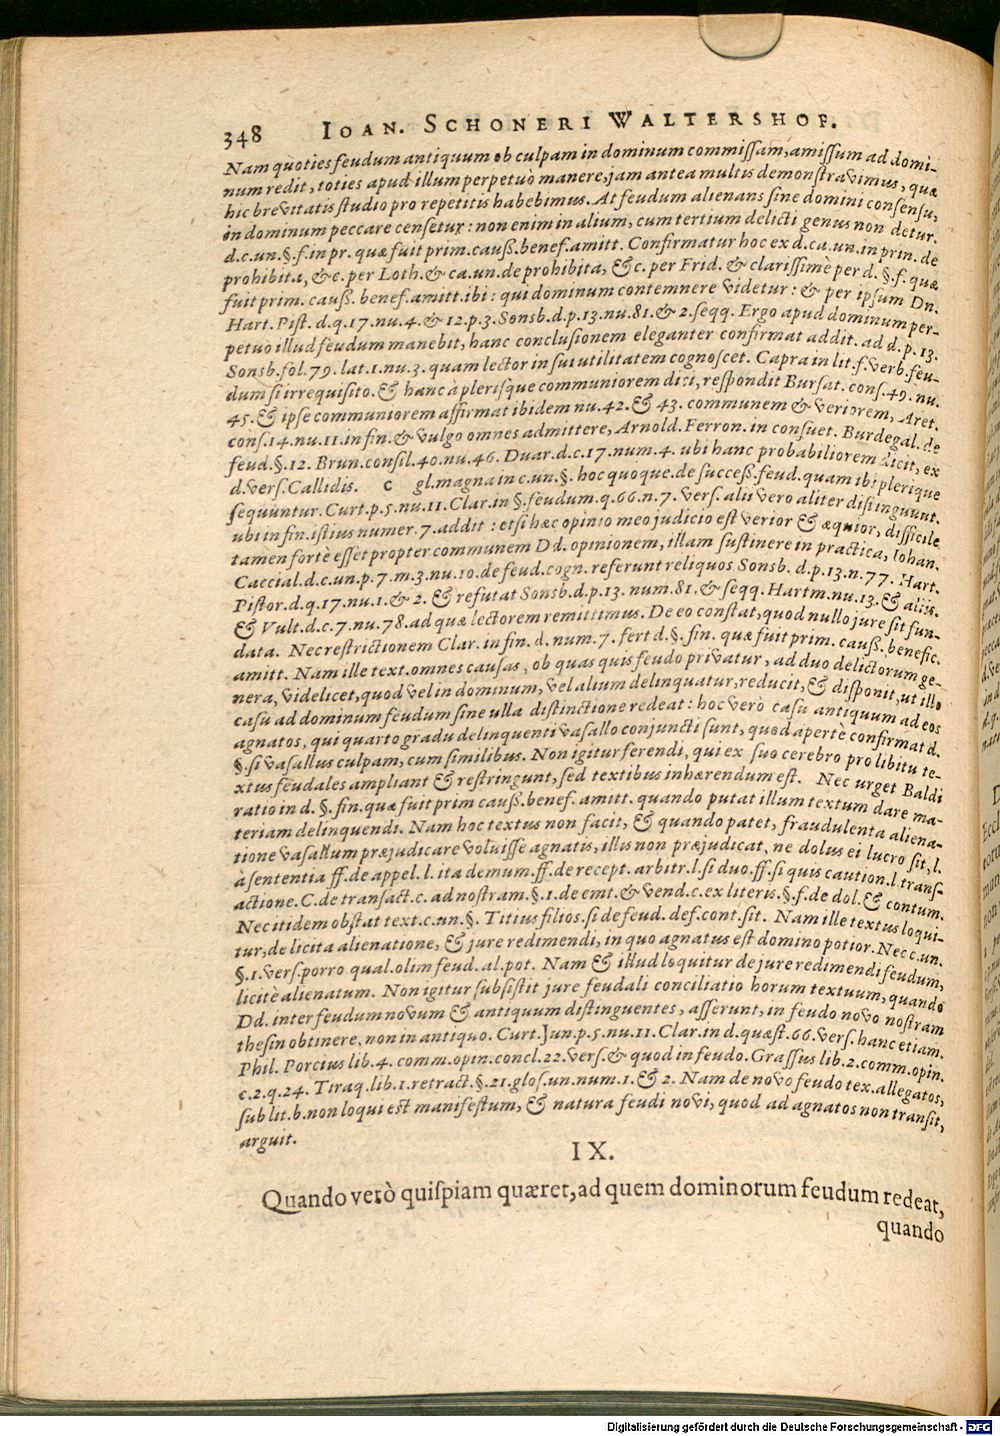 348 IOAN. SCHONERI WALTERSHOF.
Nam quoties feudum antiquum ob culpam in dominum commissam, amissum ad domi-
num redit, toties apud illum perpetuò manere, jam antea multis demonstravimus, quæ
hic brevitatis studio pro repetitis habebimus. At feudum alienans sine domini consensu,
in dominum peccare censetur: non enim in alium, cum tertium delicti genus non detur.
d.c.un.§.f. in pr. quæ fuit prim. cauß. benef. amitt. Confirmatur hoc ex d. ca. un. in prin. de
prohibita, &c. per Loth. & ca. un. de prohibita, &c. per Frid. & clarissimè per d. §.f. quæ
fuit prim. cauß. benef. amitt. ibi: qui dominum contemnere videtur: & per ipsum Dn.
Hart. Pist. d.q.17. nu. 4. & 12. p. 3. Sonsb. d.p. 13. nu. 81. & 2. seqq. Ergo apud dominum per-
petuo illud feudum manebit, hanc conclusionem eleganter confirmat addit. ad d.p. 13.
Sonsb. fol. 79. lat. 1. nu. 3. quam lector in sui utilitatem cognoscet. Capra in lit. f. verb. feu-
dum si irrequisito. & hanc à plerisque communiorem dici, respondit Bursat. cons. 49. nu.
45. & ipse communiorem affirmat ibidem nu. 42. & 43. communem & veriorem, Aret.
cons. 14. nu. 11. in fin. & vulgo omnes admittere, Arnold. Ferron. in consuet. Burdegal. de
feud. §. 12. Brun. consil. 40. nu. 46. Duar. d.c. 17. num. 4. ubi hanc probabiliorem dicit, ex
d. vers. Callidis. c gl. magna in c. un. §. hoc quoque. de succeß. feud. quam ibi plerique
sequuntur. Curt. p. 5. nu. 11. Clar. in §. feudum. q. 66. n. 7. vers. alii vero aliter distinguunt.
ubi in fin. istius numer. 7. addit: etsi hæc opinio meo judicio est verior & æquior, difficile
tamen fortè esset propter communem Dd. opinionem, illam sustinere in practica, Iohan.
Caccial. d.c. un. p. 7. m. 3. nu. 10. de feud. cogn. referunt reliquos Sonsb. d.p. 13. n. 77. Hart.
Pistor. d.q. 17. nu. 1. & 2. & refutat Sonsb. d.p. 13. num. 81. & seqq. Hartm. nu. 13. & alius.
& Vult. d.c. 7. nu. 78. ad quæ lectorem remittimus. De eo constat, quod nullo jure sit fun-
data. Nec restrictionem Clar. in fin. d. num. 7. fert d. §. fin. quæ fuit prim. cauß. benefic.
amitt. Nam ille text. omnes causas, ob quas quis feudo privatur, ad duo delictorum ge-
nera, videlicet, quod vel in dominum, vel alium delinquatur, reducit, & disponit, ut illo
casu ad dominum feudum sine ulla distinctione redeat: hoc vero casu antiquum ad eos
agnatos, qui quarto gradu delinquenti vasallo conjuncti sunt, quod apertè confirmat d.
§. si vasallus culpam, cum similibus. Non igitur ferendi, qui ex suo cerebro pro libitu te-
xtus feudales ampliant & restringunt, sed textibus inhærendum est. Nec urget Baldi
ratio in d. §. fin. quæ fuit prim cauß. benef. amitt. quando putat illum textum dare ma-
teriam delinquendi. Nam hoc textus non facit, & quando patet, fraudulenta aliena-
tione vasallum præjudicare voluisse agnatis, illis non præjudicat, ne dolus ei lucro sit, l.
à sententia ff. de appel. l. ita demum. ff. de recept. arbitr. l. si duo. ff. si quis caution. l. trans-
actione. C. de transact. c. ad nostram. §. 1. de emt. & vend. c. ex literis. §. f. de dol. & contum.
Nec itidem obstat text. c. un. §. Titius filios. si de feud. def. cont. sit. Nam ille textus loqui-
tur, de licita alienatione, & jure redimendi, in quo agnatus est domino potior. Nec c. un.
§. 1. vers. porro qual. olim feud. al. pot. Nam & illud loquitur de jure redimendi feudum,
licitè alienatum. Non igitur subsistit jure feudali conciliatio horum textuum, quando
Dd. inter feudum novum & antiquum distinguentes, asserunt, in feudo novo nostram
thesin obtinere, non in antiquo. Curt. Jun. p. 5. nu. 11. Clar. in d. quæst. 66. vers. hanc etiam.
Phil. Porcius lib. 4. comm. opin. concl. 22. vers. & quod in feudo. Grassus lib. 2. comm. opin.
c. 2. q. 24. Tiraq. lib. 1. retract. §. 21. glos. un. num. 1. & 2. Nam de novo feudo tex. allegatos,
sub lit. b. non loqui est manifestum, & natura feudi novi, quod ad agnatos non transit,
arguit.
IX.
Quando verò quispiam quæret, ad quem dominorum feudum redeat,
quando
Digitalisierung gefördert durch die Deutsche Forschungsgemeinschaft - DFG